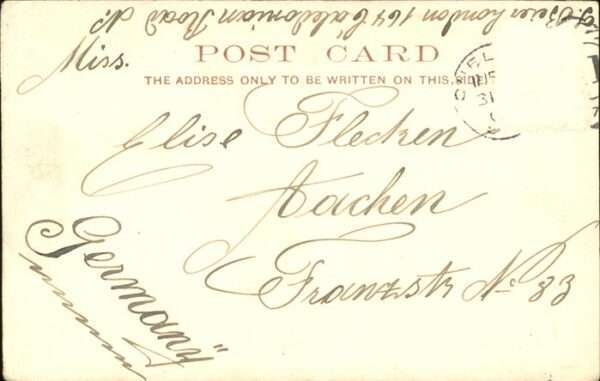 London 164 Caledonian Road N.
POST CARD
THE ADDRESS ONLY TO BE WRITTEN ON THIS SIDE
Miss.
Elise Flecken
Aachen
Franzstr No 33
Germany
31